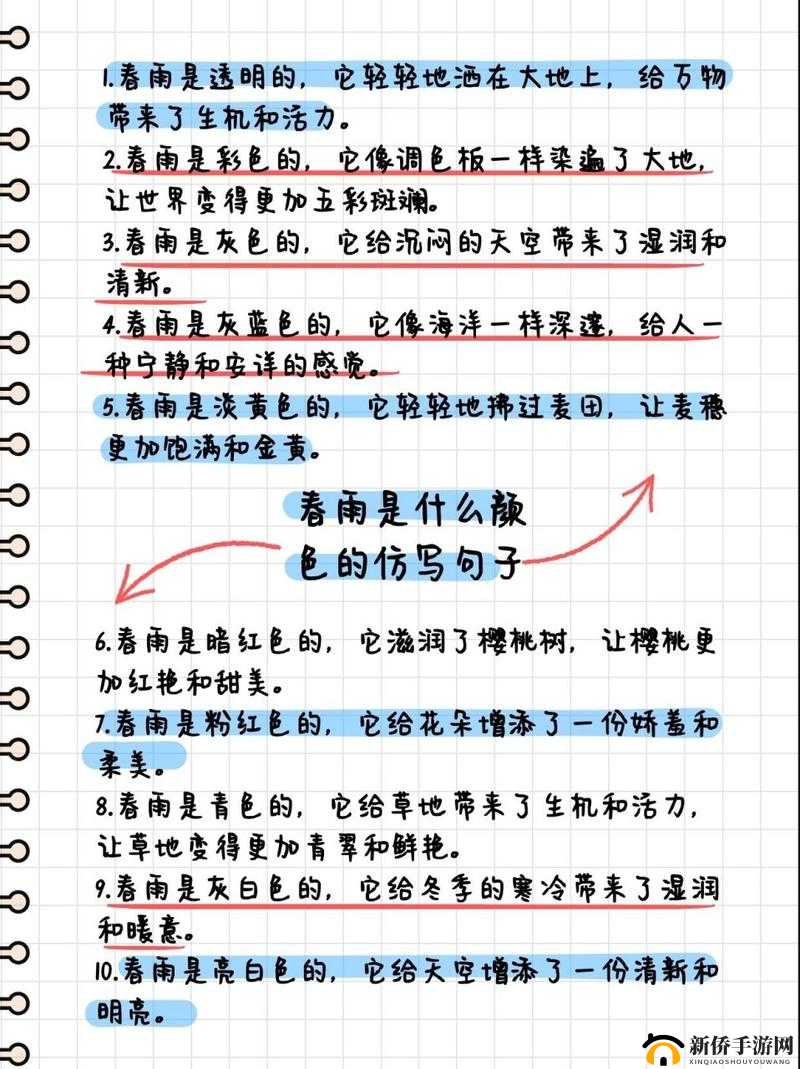 1.春雨是透明的，它轻轻地洒在大地上，给万物
带来了生机和活力。
2.春雨是彩色的，它像调色板一样染遍了大地，
让世界变得更加五彩斑斓。
3.春雨是灰色的，它给沉闷的天空带来了湿润和
清新。
4.春雨是灰蓝色的，它像海洋一样深邃，给人一
种宁静和安详的感觉。
5.春雨是淡黄色的，它轻轻地拂过麦田，让麦穗
更加饱满和金黄。
春雨是什么颜
色的仿写句子
6.春雨是暗红色的，它滋润了樱桃树，让樱桃更
加红艳和甜美。
7.春雨是粉红色的，它给花朵增添了一份娇羞和
柔美。
8.春雨是青色的，它给草地带来了生机和活力，
让草地变得更加青翠和鲜艳。
9.春雨是灰白色的，它给冬季的寒冷带来了湿润
和暖意。
10.春雨是亮白色的，它给天空增添了一份清新和
明亮。
新侨手游网
XINQIAOSHOUYOUWANG